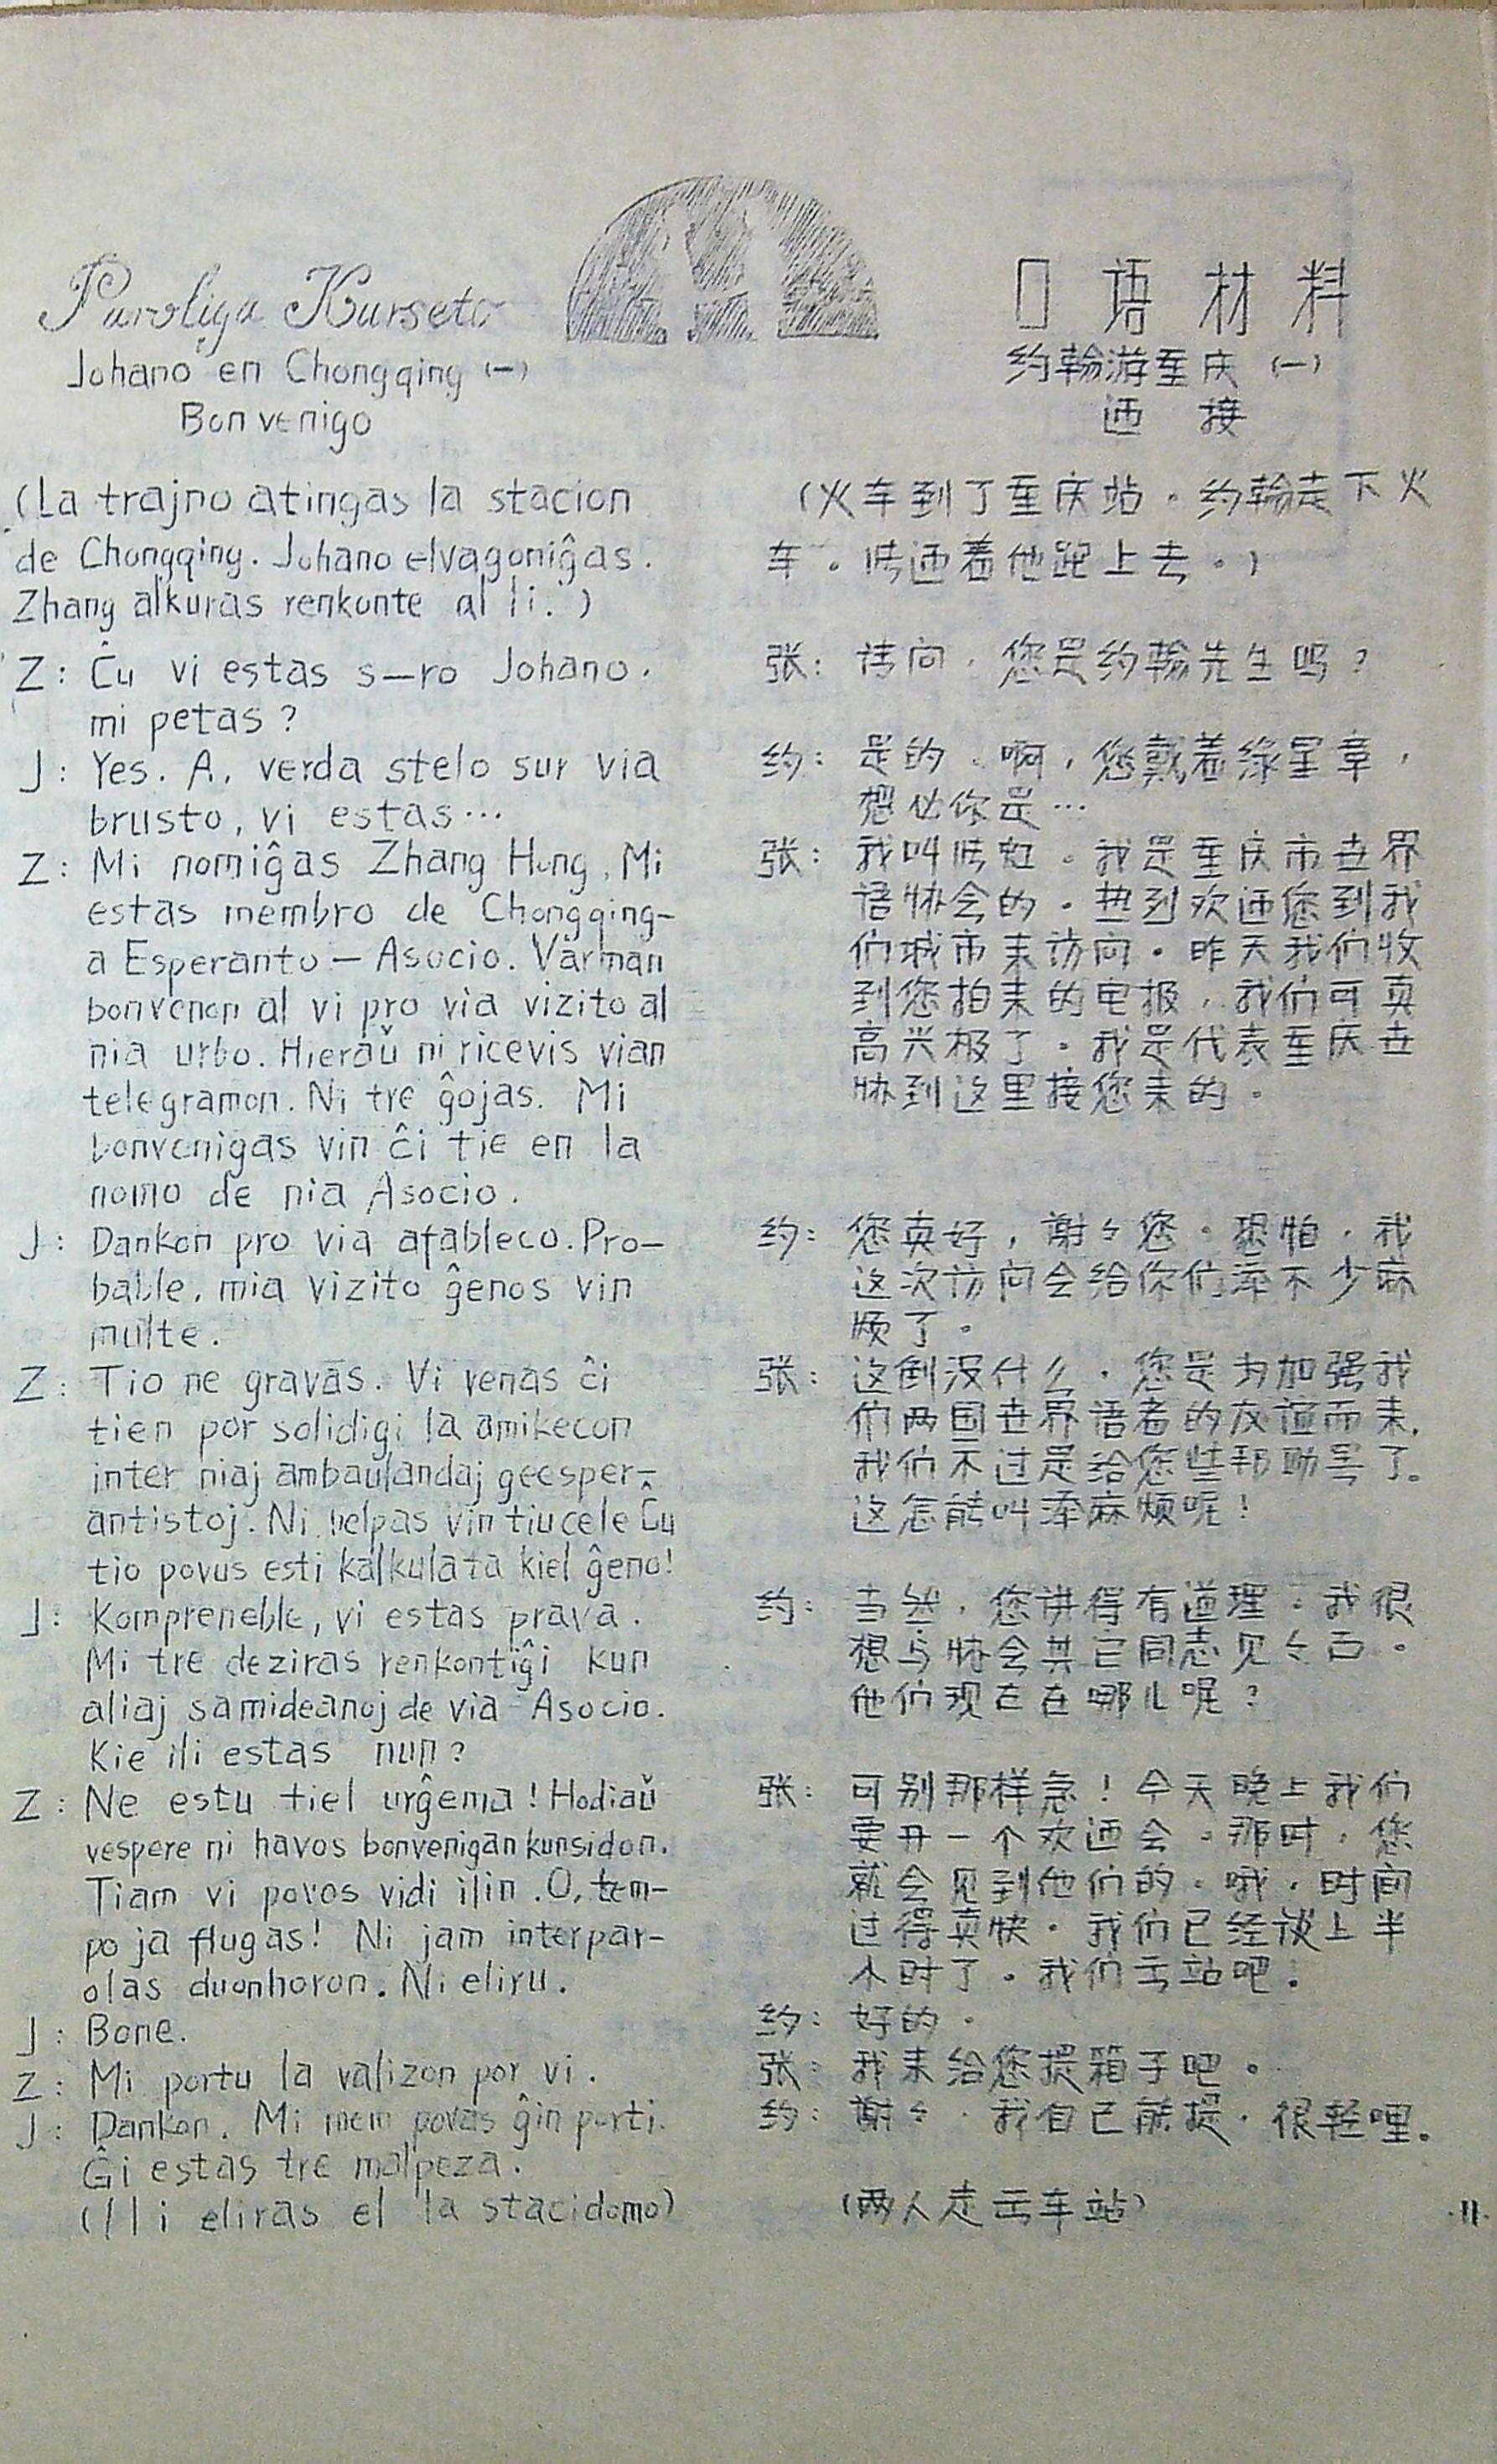 Paroliga Kurseto
Johano en Chongqing (一)
Bonvenigo
(La trajno atingas la stacion
de Chongqing. Johano elvagoniĝas.
Zhang alkuras renkonte al li.)
Z: Ĉu vi estas s–ro Johano.
mi petas?
J: Yes. A, verda stelo sur via
brusto, vi estas…
Z: Mi nomiĝas Zhang Hong. Mi
estas membro de Chongqing-
a Esperanto – Asocio. Varman
bonvenon al vi pro via vizito al
nia urbo. Hieraŭ ni ricevis vian
telegramon. Ni tre ĝojas. Mi
bonvenigas vin ĉi tie en la
nomo de nia Asocio.
J: Dankon pro via afableco. Pro-
bable, mia vizito ĝenos vin
multe.
Z: Tio ne gravas. Vi venas ĉi
tien por solidigi la amikecon
inter niaj ambaŭlandaj geesper-
antistoj. Ni helpas vin tiucele Ĉu
tio povus esti kalkulata kiel ĝeno!
J: Kompreneble, vi estas prava.
Mi tre deziras renkontiĝi kun
aliaj samideanoj de via Asocio.
Kie ili estas nun?
Z: Ne estu tiel urĝema! Hodiaŭ
vespere ni havos bonvenigan kunsidon.
Tiam vi povos vidi ilin. O, tem-
po ja flugas! Ni jam interpar-
olas duonhoron. Ni eliru.
J: Bone.
Z: Mi portu la valizon por vi.
J: Dankon. Mi mem povas ĝin porti.
Ĝi estas tre malpeza.
(Ili eliras el la stacidomo)
口语材料
约翰游重庆(一)
迎接
(火车到了重庆站。约翰走下火
车。张迎着他跑上去。)
张: 请问,您是约翰先生吗?
约: 是的。啊,您戴着绿星章,
想必你是…
张: 我叫张虹。我是重庆市世界
语协会的。热列欢迎您到我
们城市来访问。昨天我们收
到您拍来的电报,我们可真
高兴极了。我是代表重庆世
协到这里接您来的。
约: 您真好,谢々您。恐怕,我
这次访问会给你们添不少麻
烦了。
张: 这倒没什么。您是为加强我
们两国世界语者的友谊而来,
我们不过是给您些帮助罢了。
这怎能叫添麻烦呢!
约: 当然,您讲得有道理。我很
想与协会其它同志见々面。
他们现在在哪儿呢?
张: 可别那样急!今天晚上我们
要开一个欢迎会。那时,您
就会见到他们的。哦,时间
过得真快。我们已经谈上半
小时了。我们去站吧。
约: 好的。
张: 我来给您提箱子吧。
约: 谢々。我自己能提。很轻哩。
(两人走出车站)
·11·